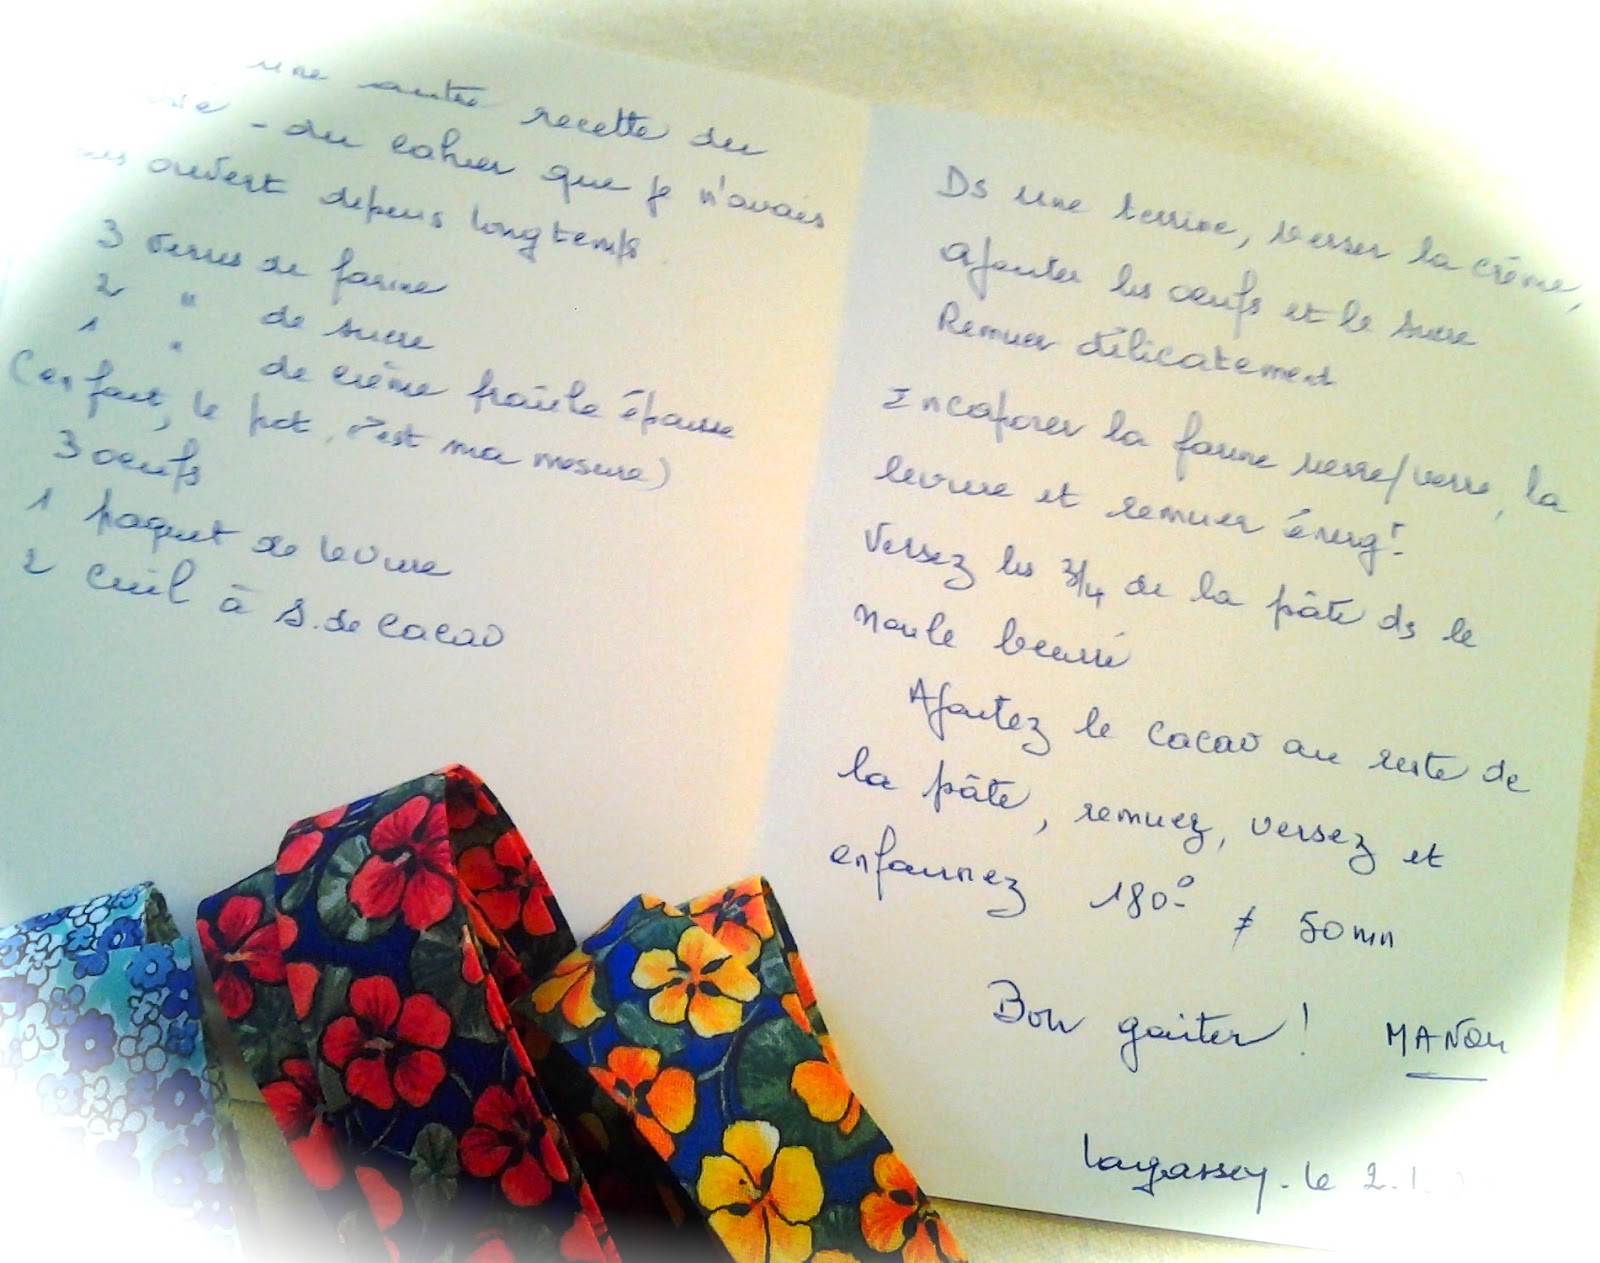 une autre recette du
- du cahier que je n'avais
ouvert depuis longtemps
3 verres de farine
2 " de sucre
1 " de crème fraîche épaisse
(en fait, le pot, c'est ma mesure)
3 oeufs
1 paquet de levure
2 cuil à S. de cacao
Ds une terrine, verser la crème,
Ajouter les oeufs et le sucre
Remuer délicatement
Incoporer la farine verre/verre, la
levure et remuer énergt.
Versez les 3/4 de la pâte ds le
moule beurré
Ajoutez le cacao au reste de
la pâte, remuez, versez et
enfournez 180° ≠ 50 mn
Bon goûter ! MANou
Lagassey. le 2.1.